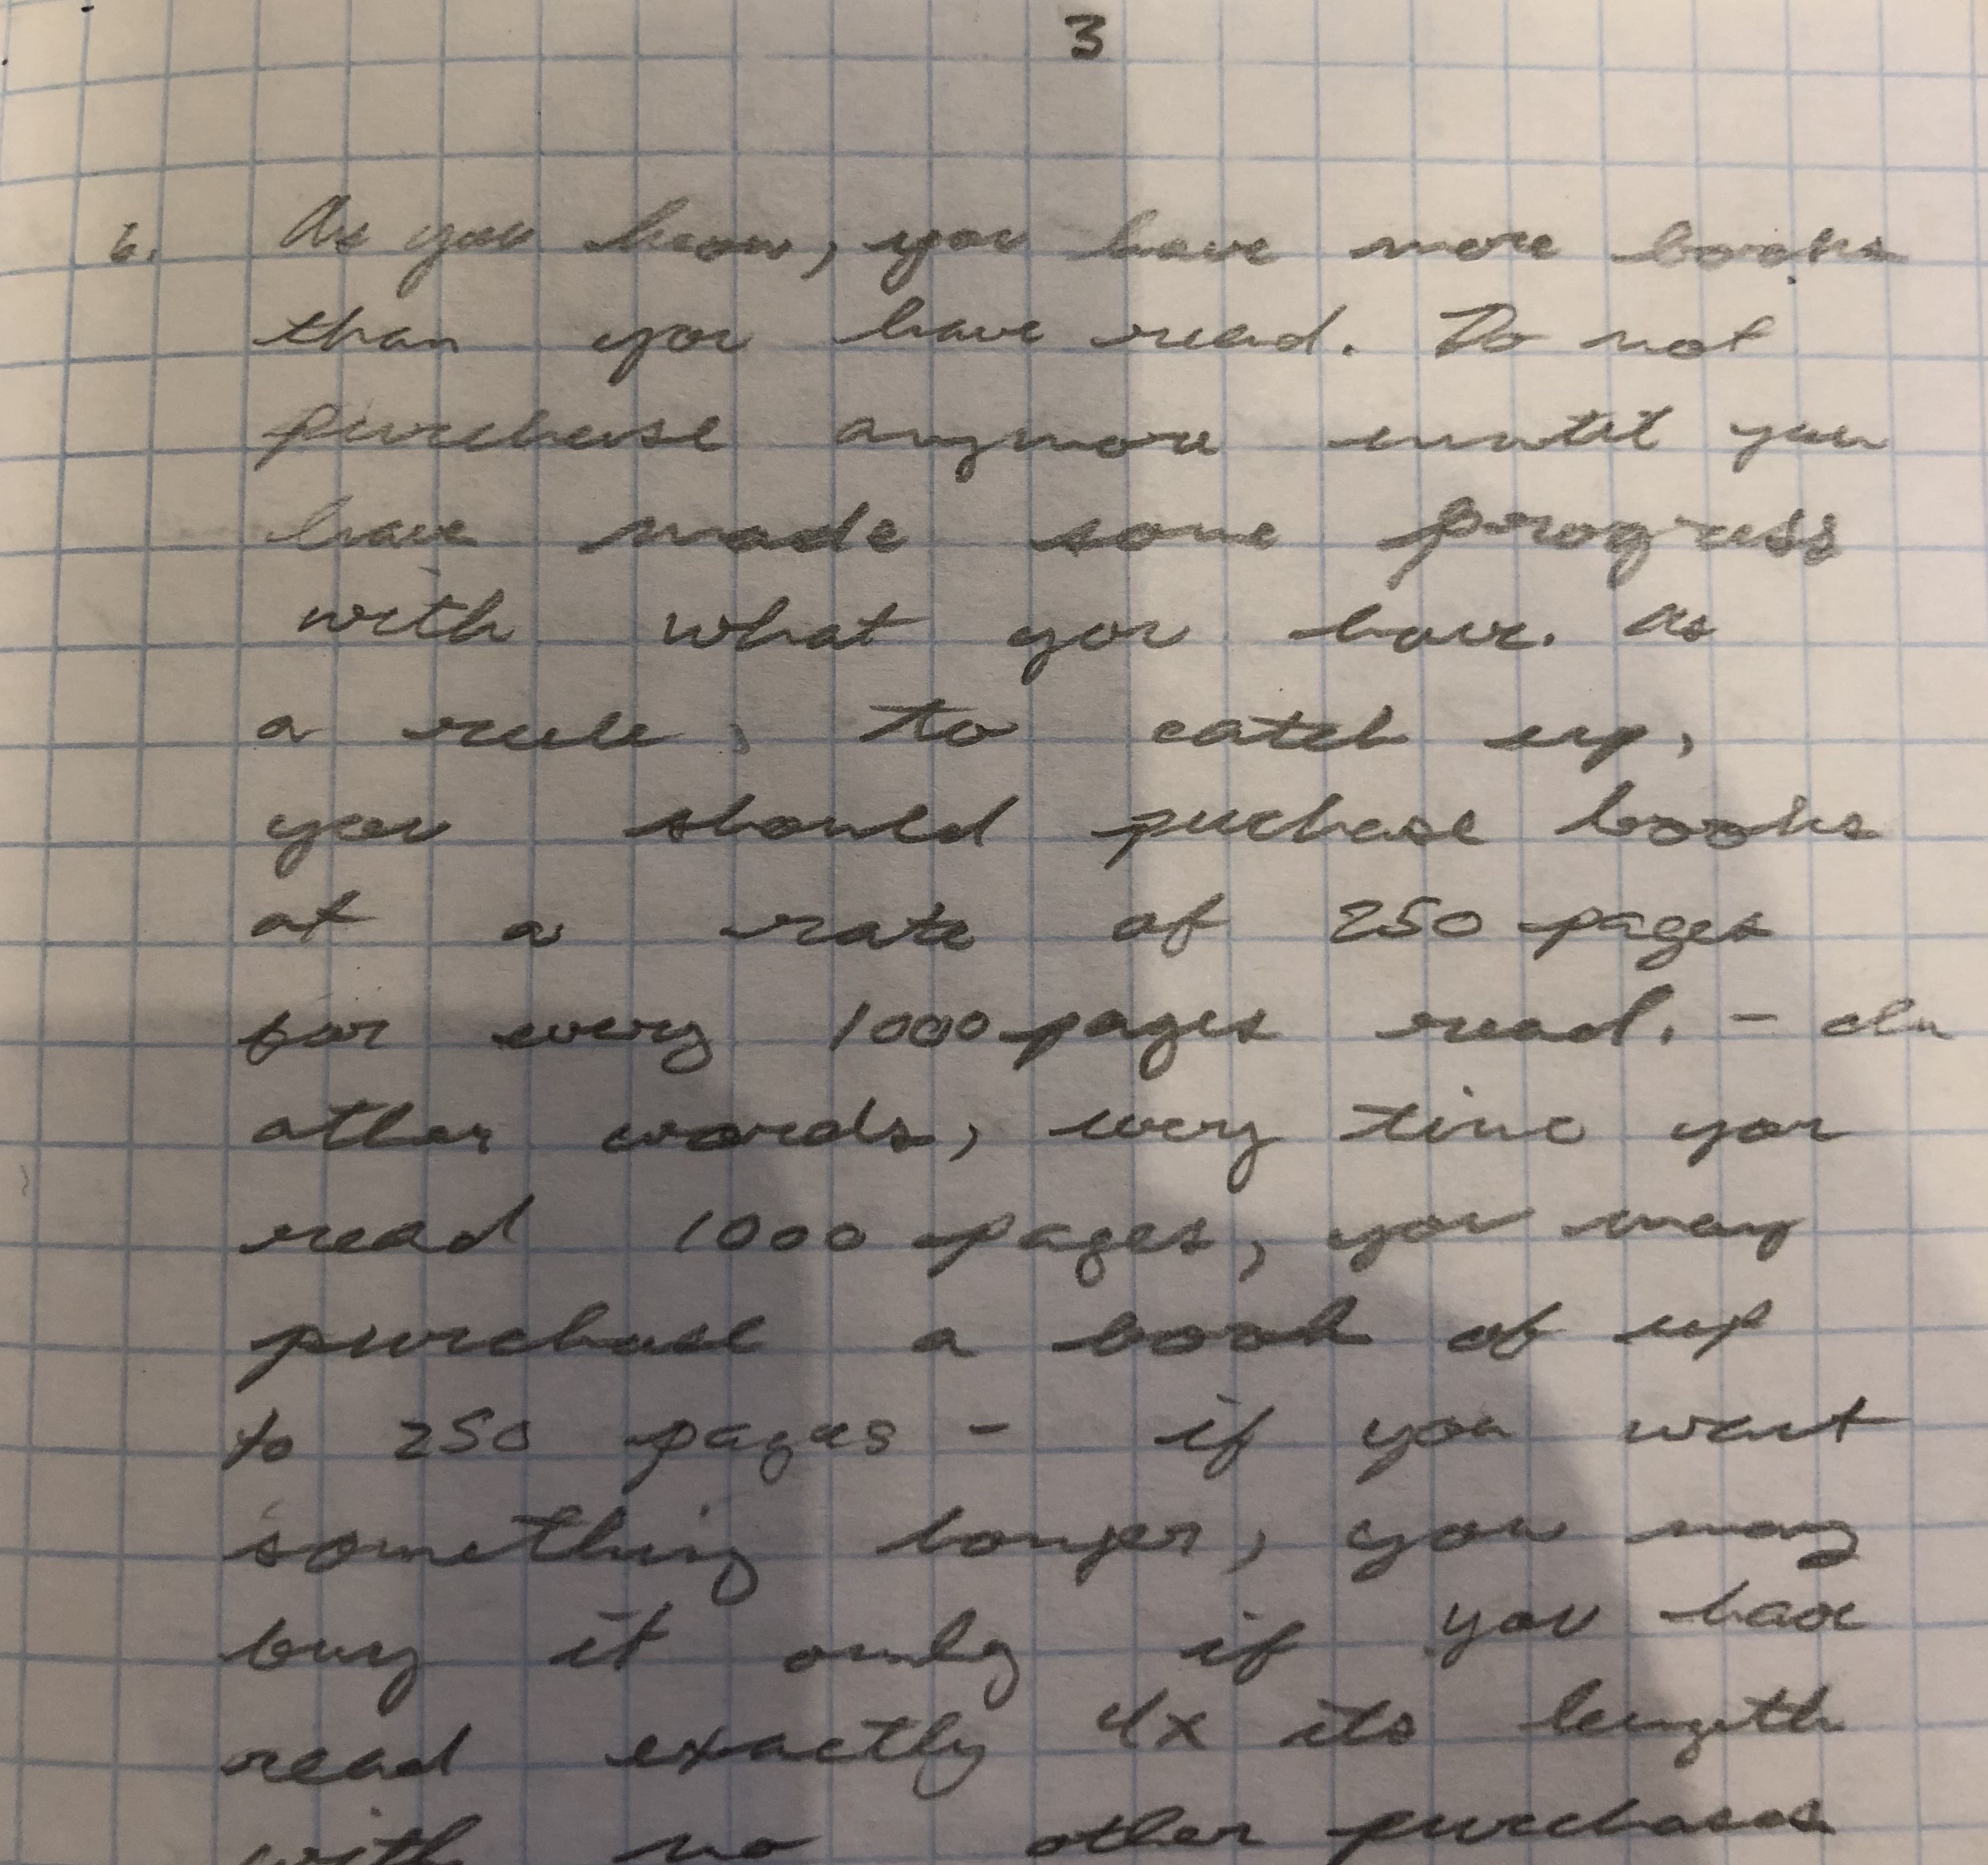 3
6. As you know, you have more books
than you have read. Do not
purchase anymore until you
have made some progress
with what you have. As
a rule, to catch up,
you should puchase books
at a rate of 250 pages
for every 1000 pages read. - In
other words, every time you
read 1000 pages, you may
purchase a book of up
to 250 pages - if you want
something longer, you may
buy it only if you have
read exactly 4x its length
with no other purchases